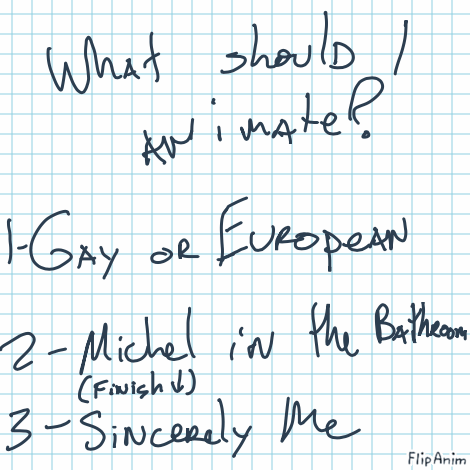 What should I
animate?
1-Gay or European
2-Michel in the Bathroom
(Finish ↓)
3-Sincerely Me
FlipAnim